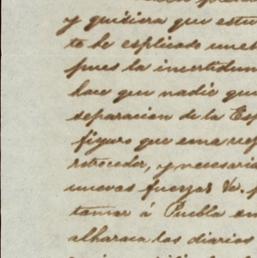 y quisiera que estu
to he esplicado unes
pues la incertidum
hace que nadie qui
separacion de la Esp
figuro que una resp
retroceder, y necesaria
nuevas fuerzas &c. p
tomar á Puebla en
alharaca los diarios